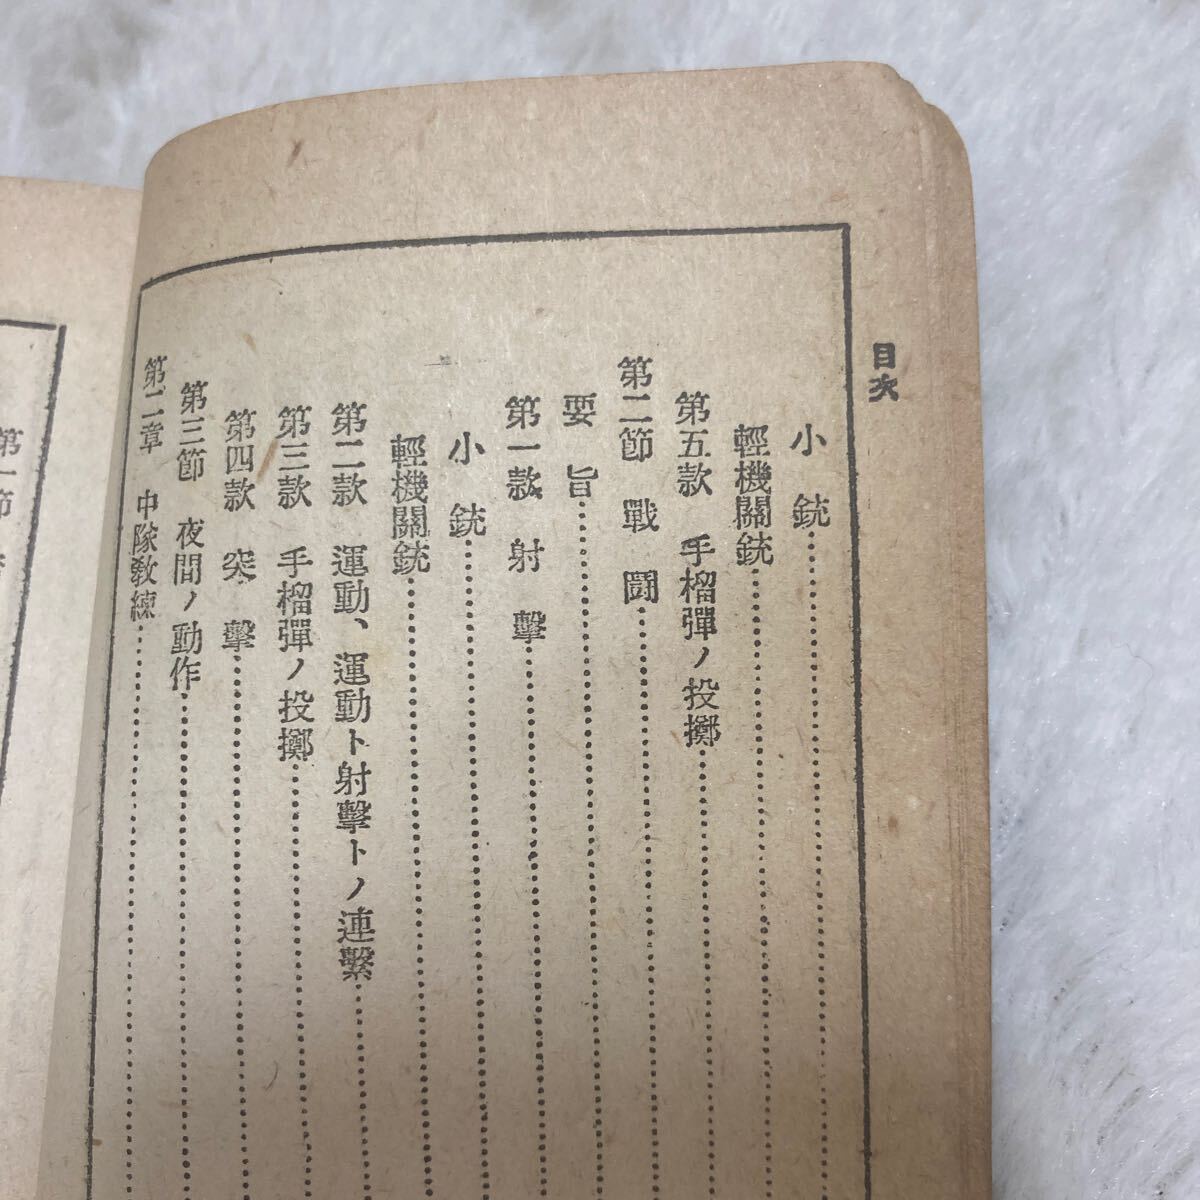 目次
小銃
輕機關銃
第五款 手榴彈ノ投擲
第二節 戰鬪
要旨
第一款 射擊
小銃
輕機關銃
第二款 運動、運動ト射擊トノ連繫
第三款 手榴彈ノ投擲
第四款 突擊
第三節 夜間ノ動作
第二章 中隊敎練
第一節